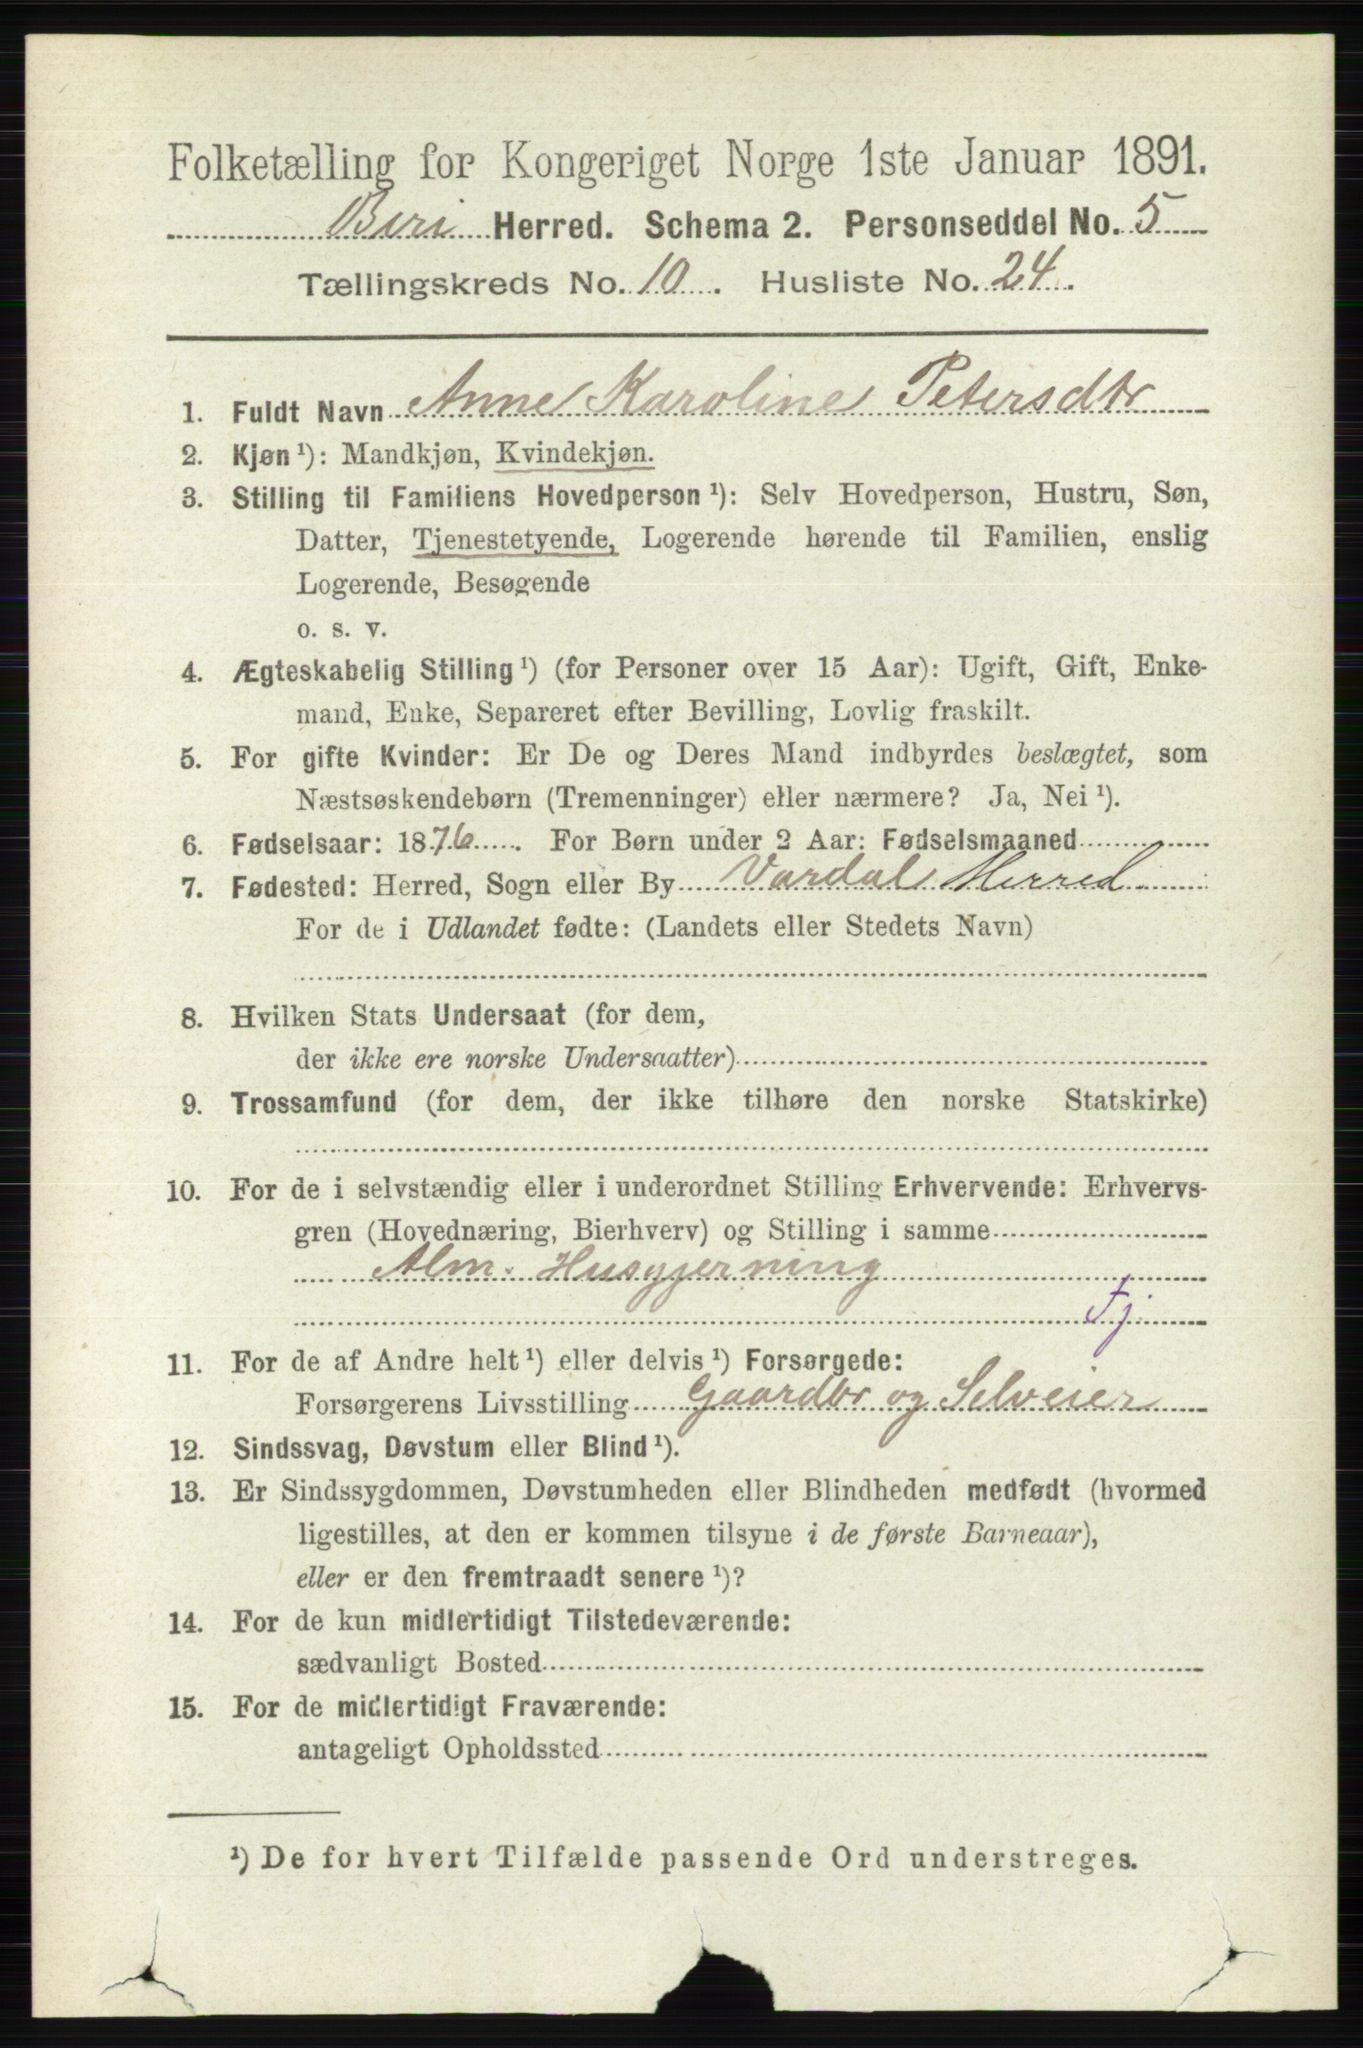 Folketælling for Kongeriget Norge 1ste Januar 1891.
Biri Herred. Schema 2. Personseddel No. 5
Tællingskreds No. 10. Husliste No. 24.
1. Fuldt Navn Anne Karoline Petersdtr
2. Kjøn ¹): Mandkjøn, Kvindekjøn.
3. Stilling til Familiens Hovedperson ¹): Selv Hovedperson, Hustru, Søn,
Datter, Tjenestetyende, Logerende hørende til Familien, enslig
Logerende, Besøgende
o. s. v.
4. Ægteskabelig Stilling ¹) (for Personer over 15 Aar): Ugift, Gift, Enke-
mand, Enke, Separeret efter Bevilling, Lovlig fraskilt.
5. For gifte Kvinder: Er De og Deres Mand indbyrdes beslægtet, som
Næstsøskendebørn (Tremenninger) eller nærmere? Ja, Nei ¹).
6. Fødselsaar: 1876. For Børn under 2 Aar: Fødselsmaaned
7. Fødested: Herred, Sogn eller By Vardal Herred
For de i Udlandet fødte: (Landets eller Stedets Navn)
8. Hvilken Stats Undersaat (for dem,
der ikke ere norske Undersaatter)
9. Trossamfund (for dem, der ikke tilhøre den norske Statskirke)
10. For de i selvstændig eller i underordnet Stilling Erhvervende: Erhvervs-
gren (Hovednæring, Bierhverv) og Stilling i samme
Alm. Husgjerning
tj
11. For de af Andre helt ¹) eller delvis ¹) Forsørgede:
Forsørgerens Livsstilling Gaardbr og Selveier
12. Sindssvag, Døvstum eller Blind ¹).
13. Er Sindssygdommen, Døvstumheden eller Blindheden medfødt (hvormed
ligestilles, at den er kommen tilsyne i de første Barneaar),
eller er den fremtraadt senere ¹)?
14. For de kun midlertidigt Tilstedeværende:
sædvanligt Bosted
15. For de midlertidigt Fraværende:
antageligt Opholdssted
¹) De for hvert Tilfælde passende Ord understreges.